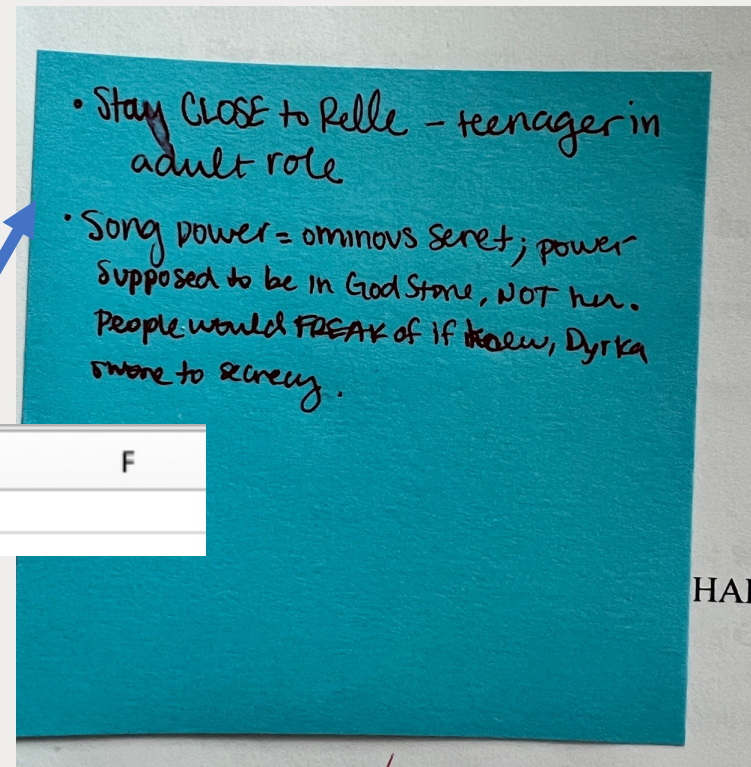 • Stay CLOSE to Relle – teenager in
adult role
• Song power = ominous seret; power
supposed to be in God Stone, NOT her.
People would FREAK of if knew, Dyrka
swore to secrecy.
F
HAI